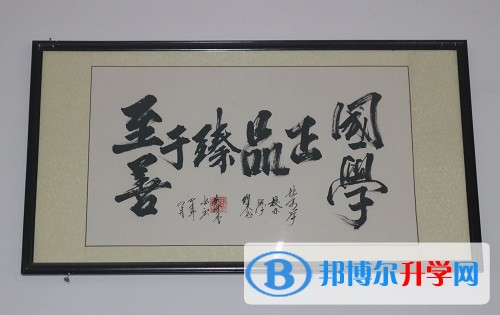 國學
正品臻于
至善
B 邦博尔升学网